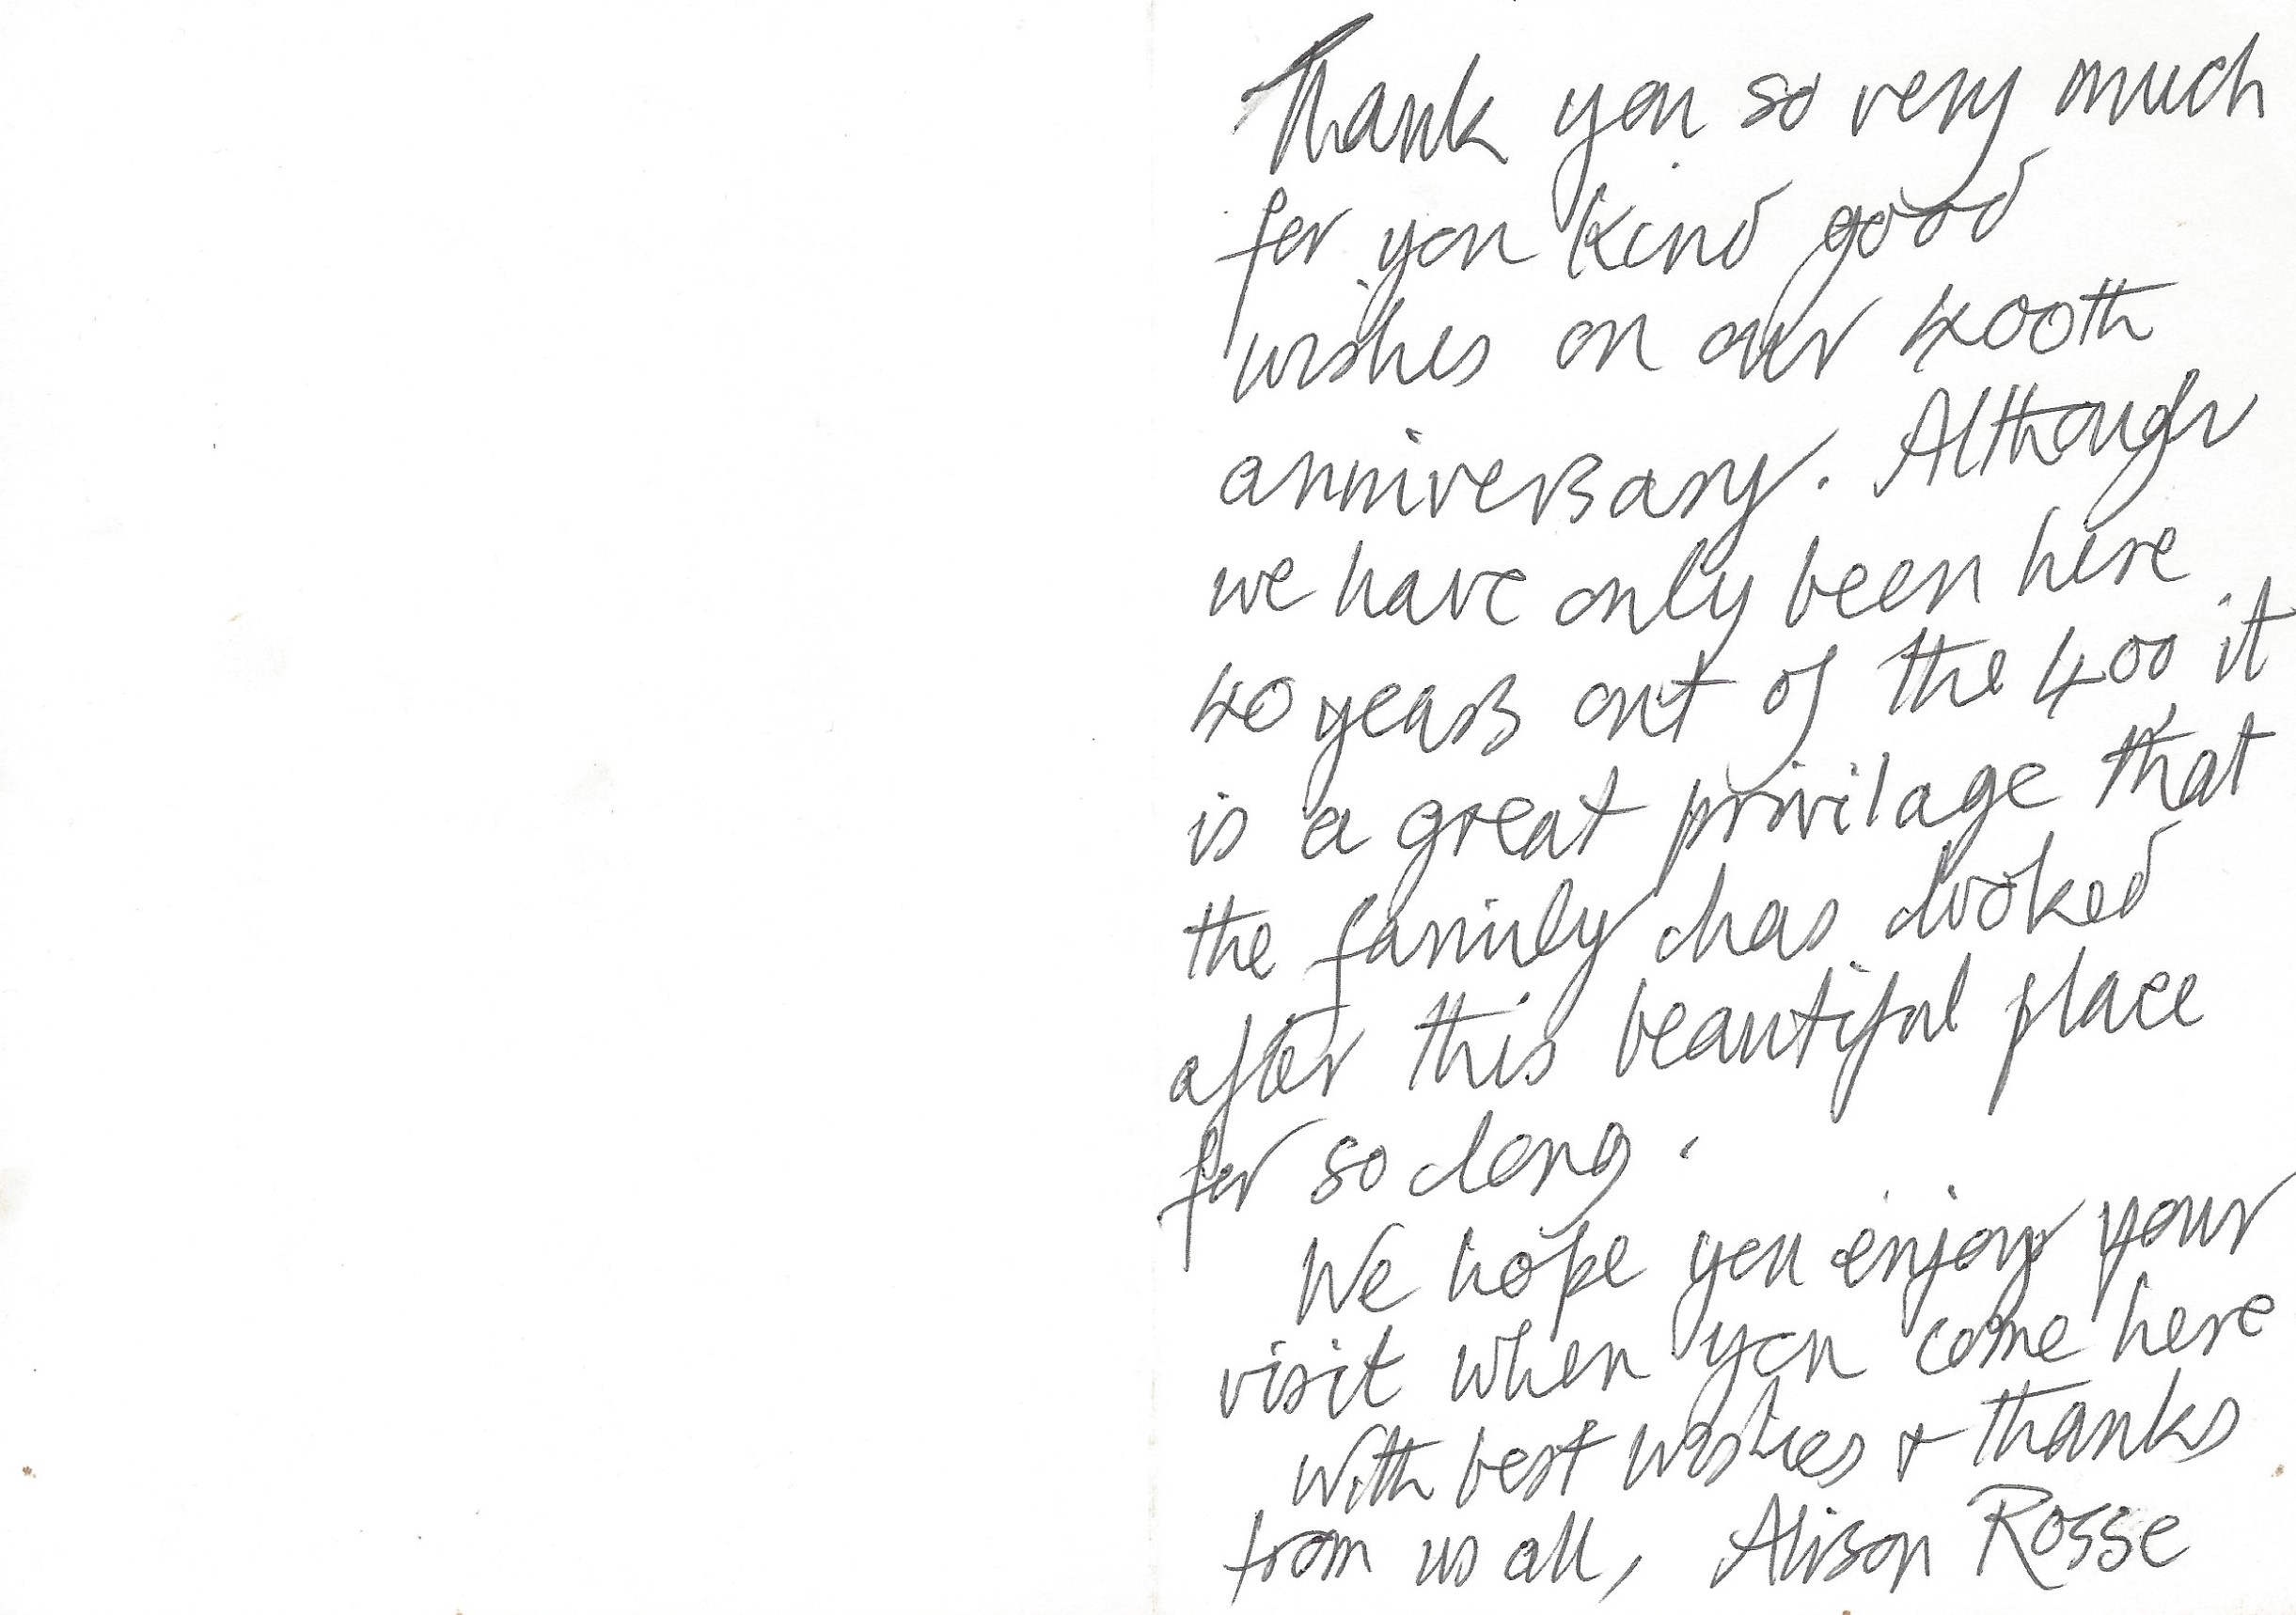 Thank you so very much
for you kind good
wishes on our 400th
anniversary. Although
we have only been here
40 years out of the 400 it
is a great privilage that
the family has looked
after this beautiful place
for so long.
We hope you enjoy your
visit when you come here
With best wishes + thanks
from us all, Alison Rosse